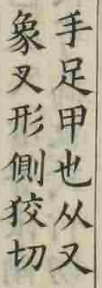 手足甲也从又
象叉形側狡切